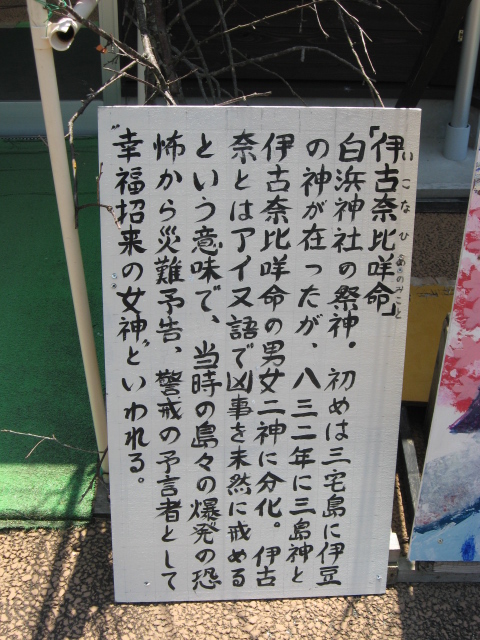 「伊古奈比咩命」
いこなひめのみこと
白浜神社の祭神。初めは三宅島に伊豆
の神が在ったが、八三二年に三島神と
伊古奈比咩命の男女二神に分化。伊古
奈とはアイヌ語で凶事を未然に戒める
という意味で、当時の島々の爆発の恐
怖から災難予告、警戒の予言者として
〝幸福招来の女神〟といわれる。